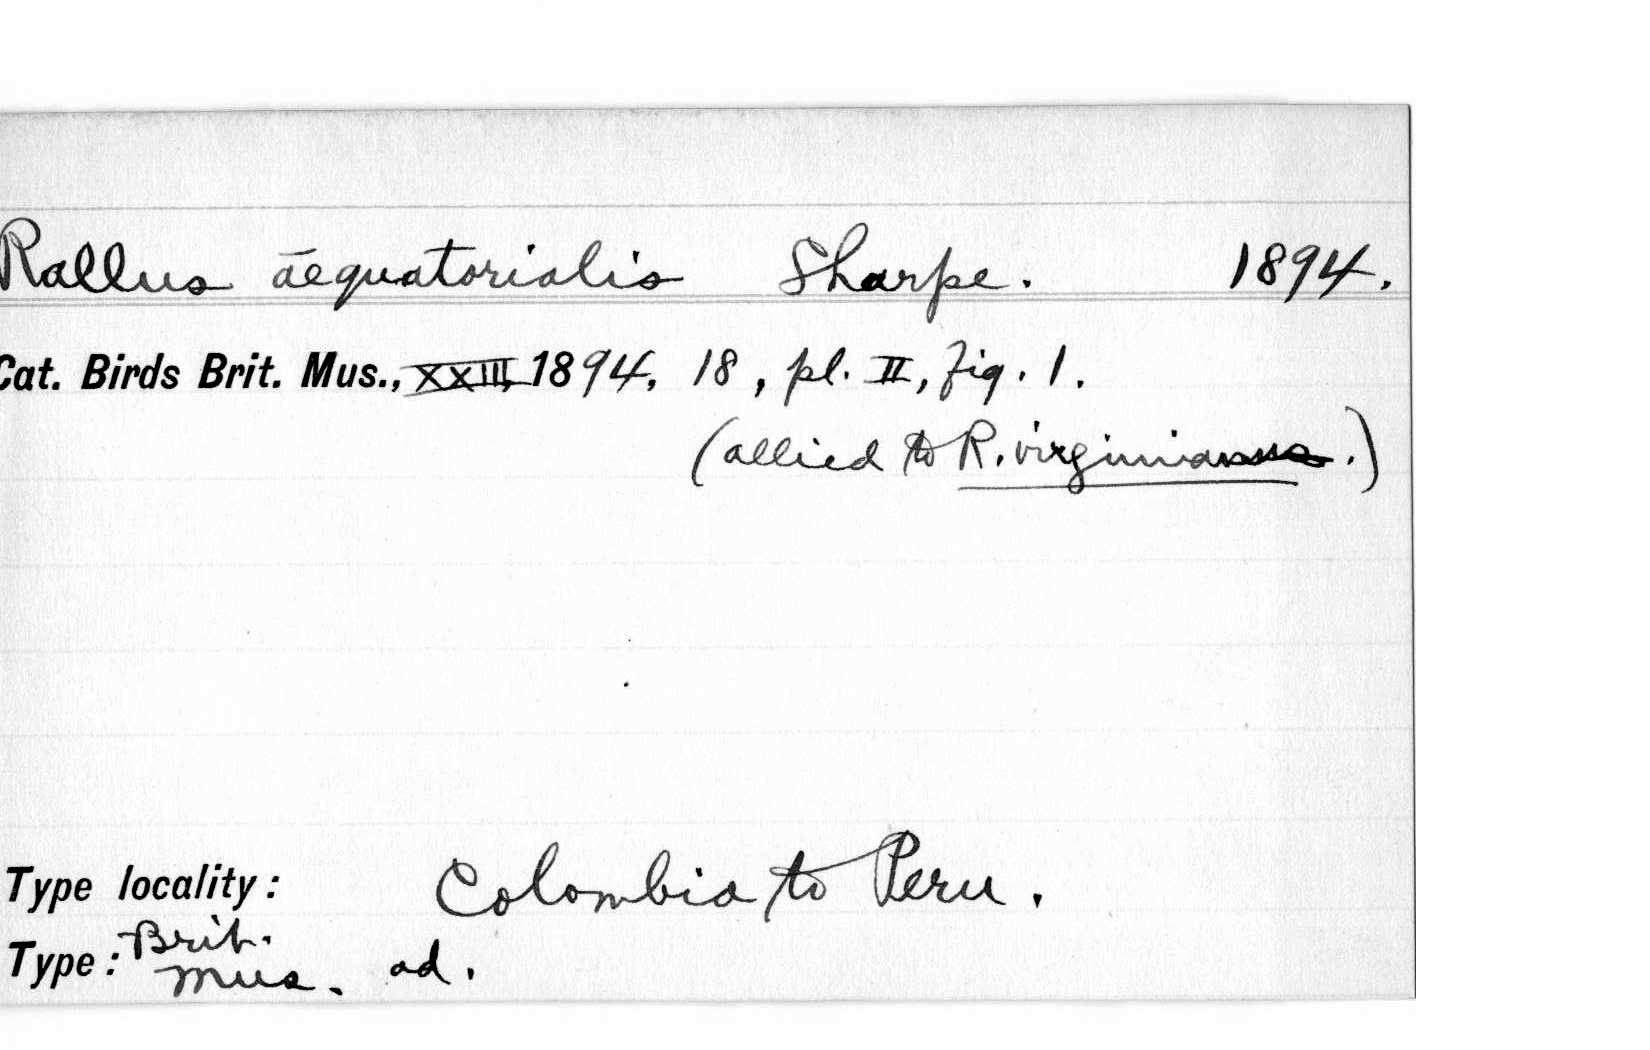 Rallus aequatorialis Sharpe. 1894.
Cat. Birds Brit. Mus., XXIII, 1894, 18, pl. II, fig. 1.
(allied to R. virginianus.)
Type locality: Colombia to Peru.
Type: Brit. Mus. ad.